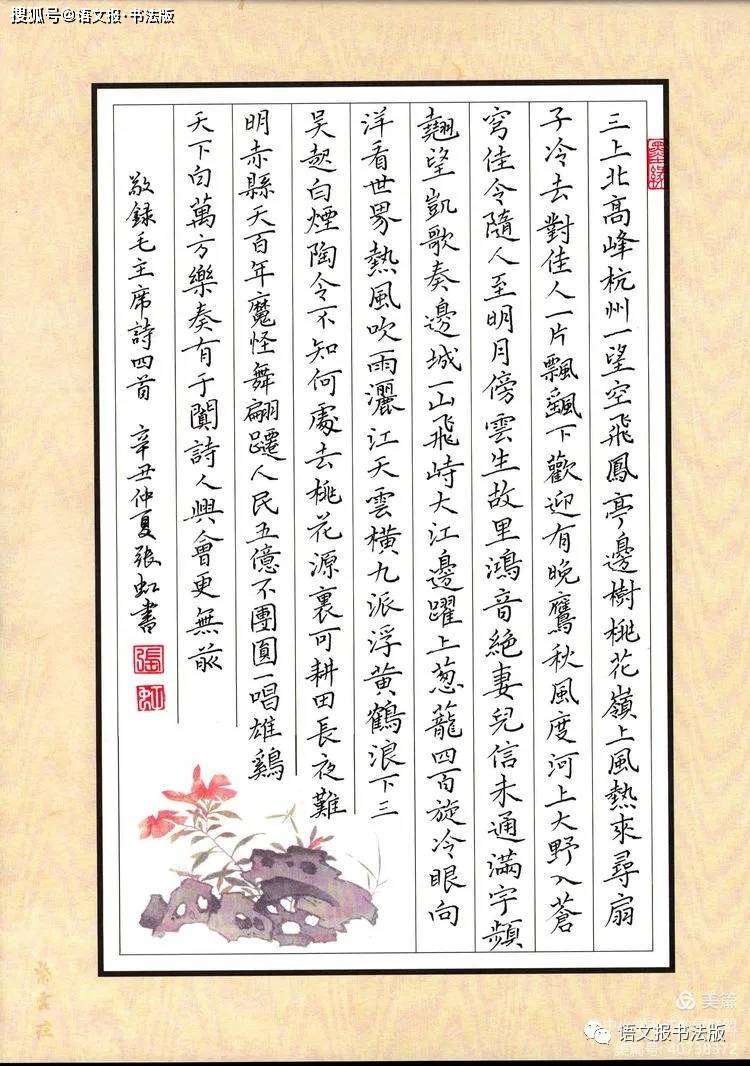 搜狐号@语文报·书法版
墨緣
三上北高峰杭州一望空飛鳳亭邊樹桃花嶺上風熱來尋扇
子冷去對佳人一片飄飄下歡迎有晚鷹秋風度河上大野入蒼
穹佳令隨人至明月傍雲生故里鴻音絶妻兒信未通滿宇頻
翹望凱歌奏邊城一山飛峙大江邊躍上葱蘢四百旋冷眼向
洋看世界熱風吹雨灑江天雲橫九派浮黃鶴浪下三
吴起白煙陶令不知何處去桃花源裏可耕田長夜難
明赤縣天百年魔怪舞翩躚人民五億不團圓一唱雄鷄
天下白萬方樂奏有于闐詩人興會更無前
敬録毛主席詩四首 辛丑仲夏張虹書
張
虹
美篇
语文报书法版